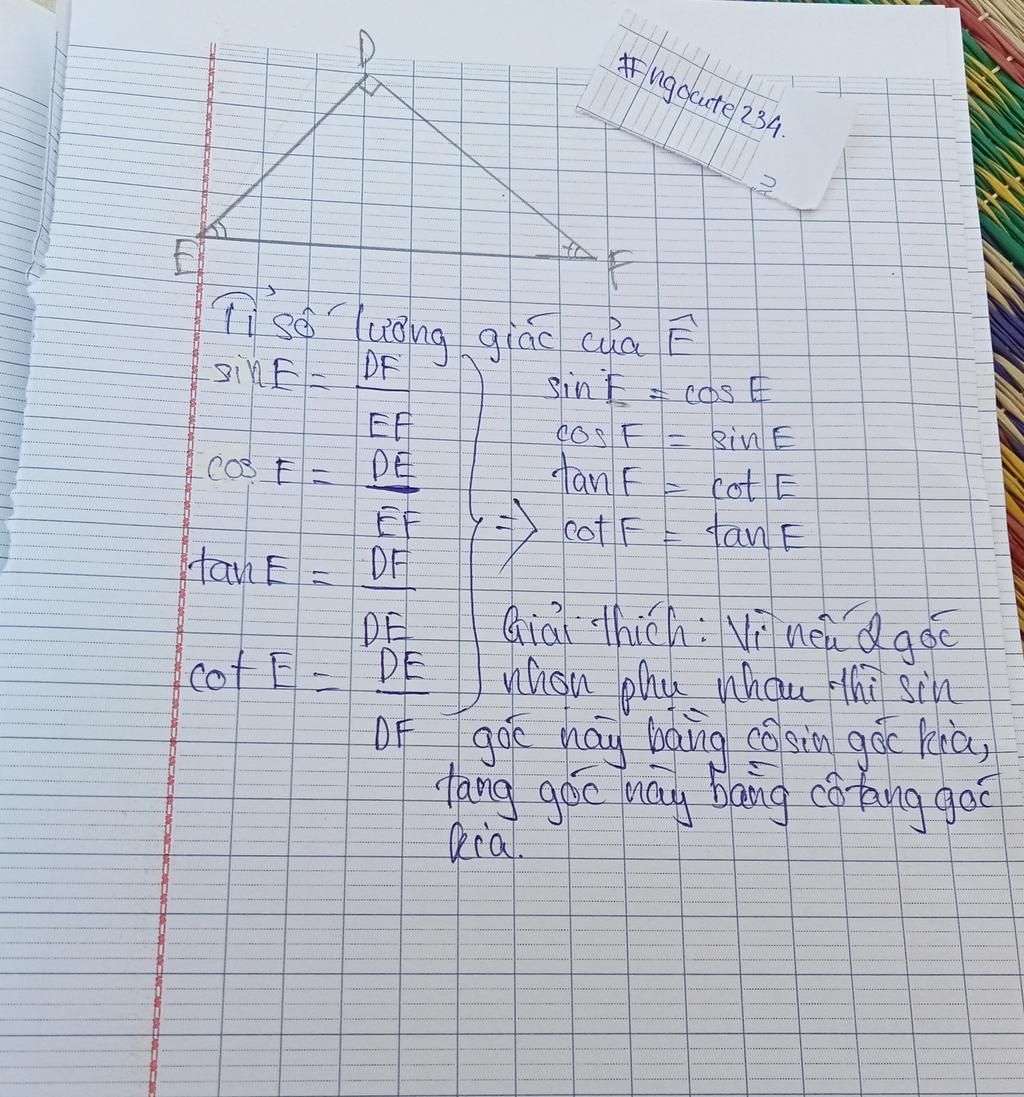 D
#ngocute234.
E
F
Tỉ số lượng giác của Ê
sin E = DF
EF
cos E = DE
EF
tan E = DF
DE
cot E = DE
DF
=>
sin F = cos E
cos F = sin E
tan F = cot E
cot F = tan E
Giải thích: Vì nếu 2 góc
nhọn phụ nhau thì sin
góc này bằng côsin góc kia,
tang góc này bằng côtang góc
kia.